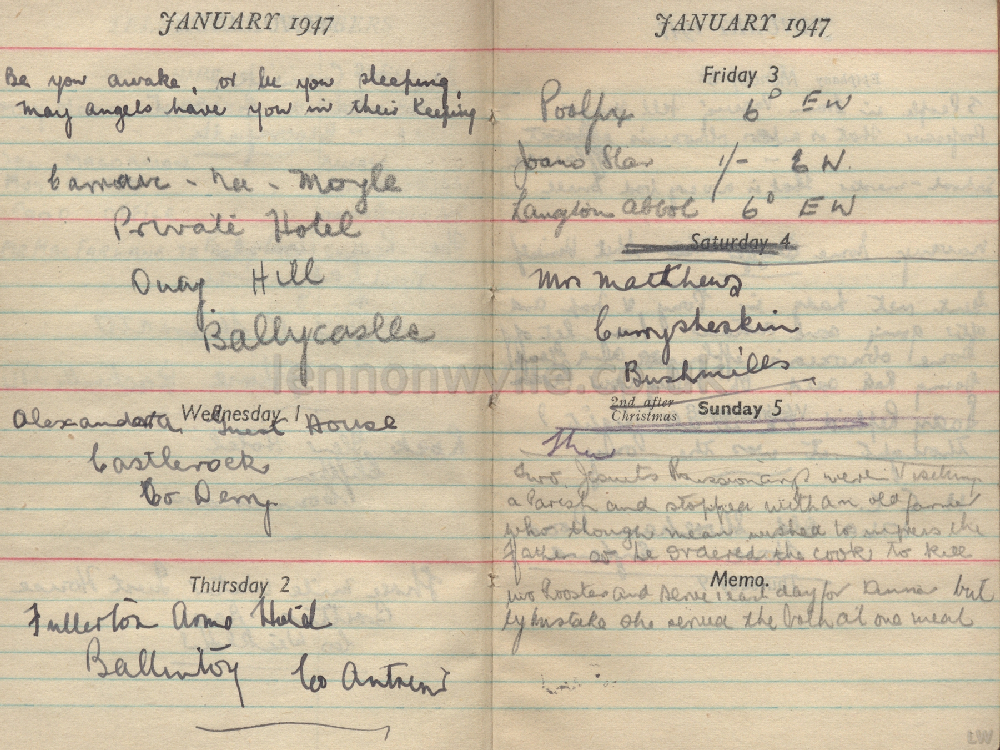 JANUARY 1947
Be you awake, or be you sleeping,
May angels have you in their keeping
Carraig-na-Moyle
Private Hotel
Quay Hill
Ballycastle
Wednesday 1
Alexandra Guest House
Castlerock
Co Derry
Thursday 2
Fullerton Arms Hotel
Ballintoy Co Antrim
JANUARY 1947
Friday 3
Poolfox 6D EW
Joans Star 1/- EW.
Langton Abbot 6D EW
Saturday 4
Mrs Matthews
Currysheskin
Bushmills
2nd after Christmas Sunday 5
The
Two Jesuits Missionarys were visiting
a Parish and stopped with an old farmer
who though mean wished to impress the
so he ordered the cook to kill
Memo.
two Roosters and serve 1 each day for Dinner but
by mistake she served the both at one meal
lennonwylie.c
LW